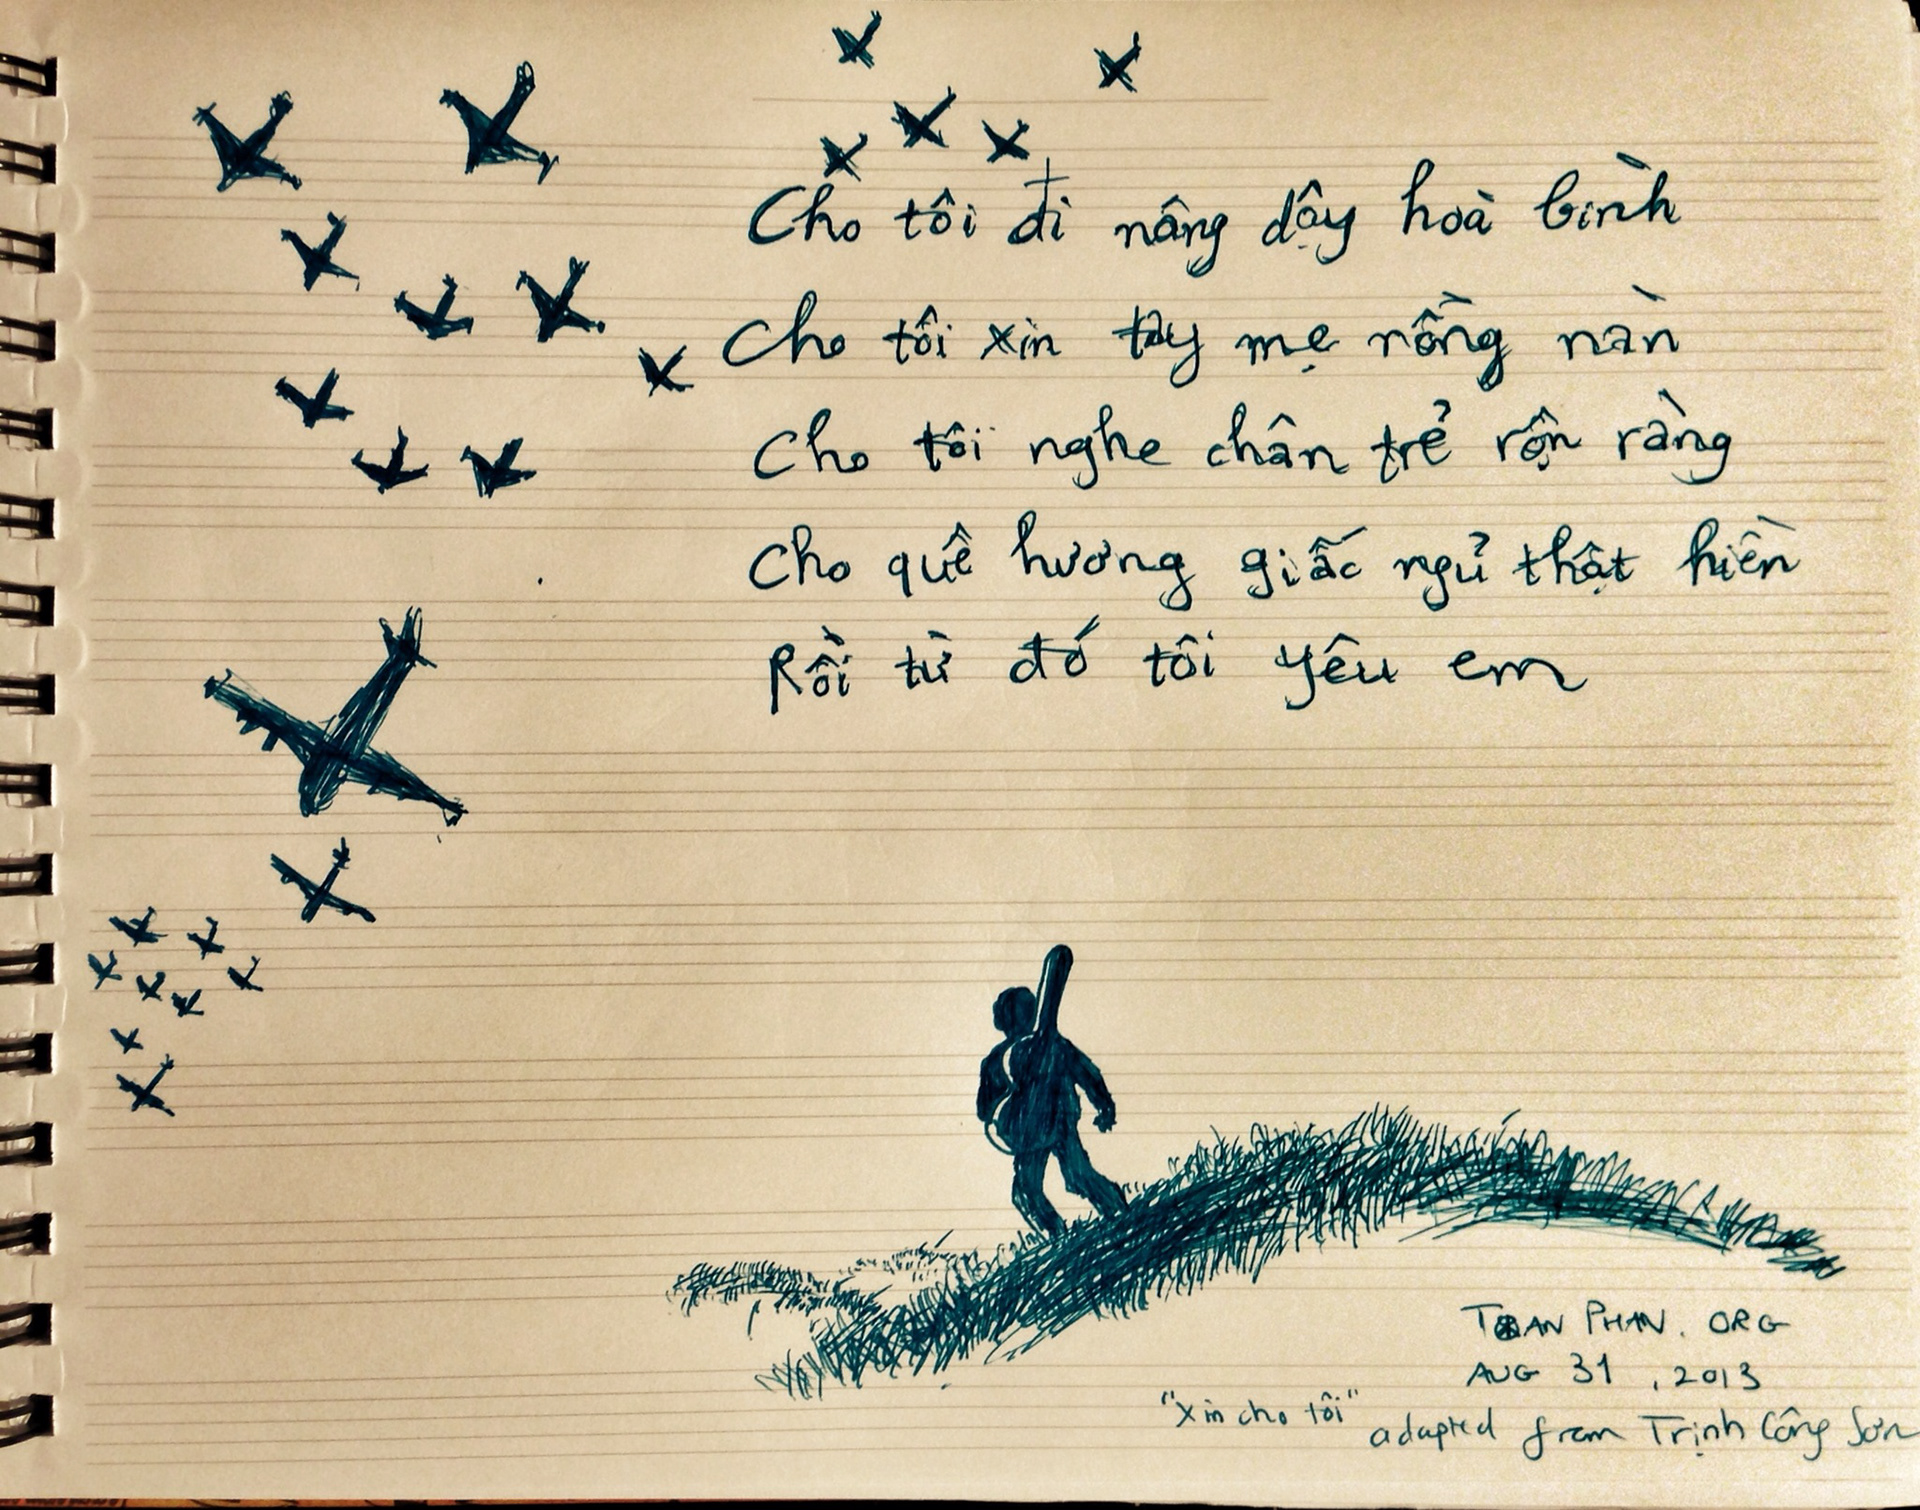 Cho tôi đi nâng dậy hoà bình
Cho tôi xin tay mẹ nồng nàn
Cho tôi nghe chân trẻ rộn ràng
Cho quê hương giấc ngủ thật hiền
Rồi từ đó tôi yêu em
TOAN PHAN. ORG
AUG 31, 2013
"Xin cho tôi" adapted from Trịnh Công Sơn